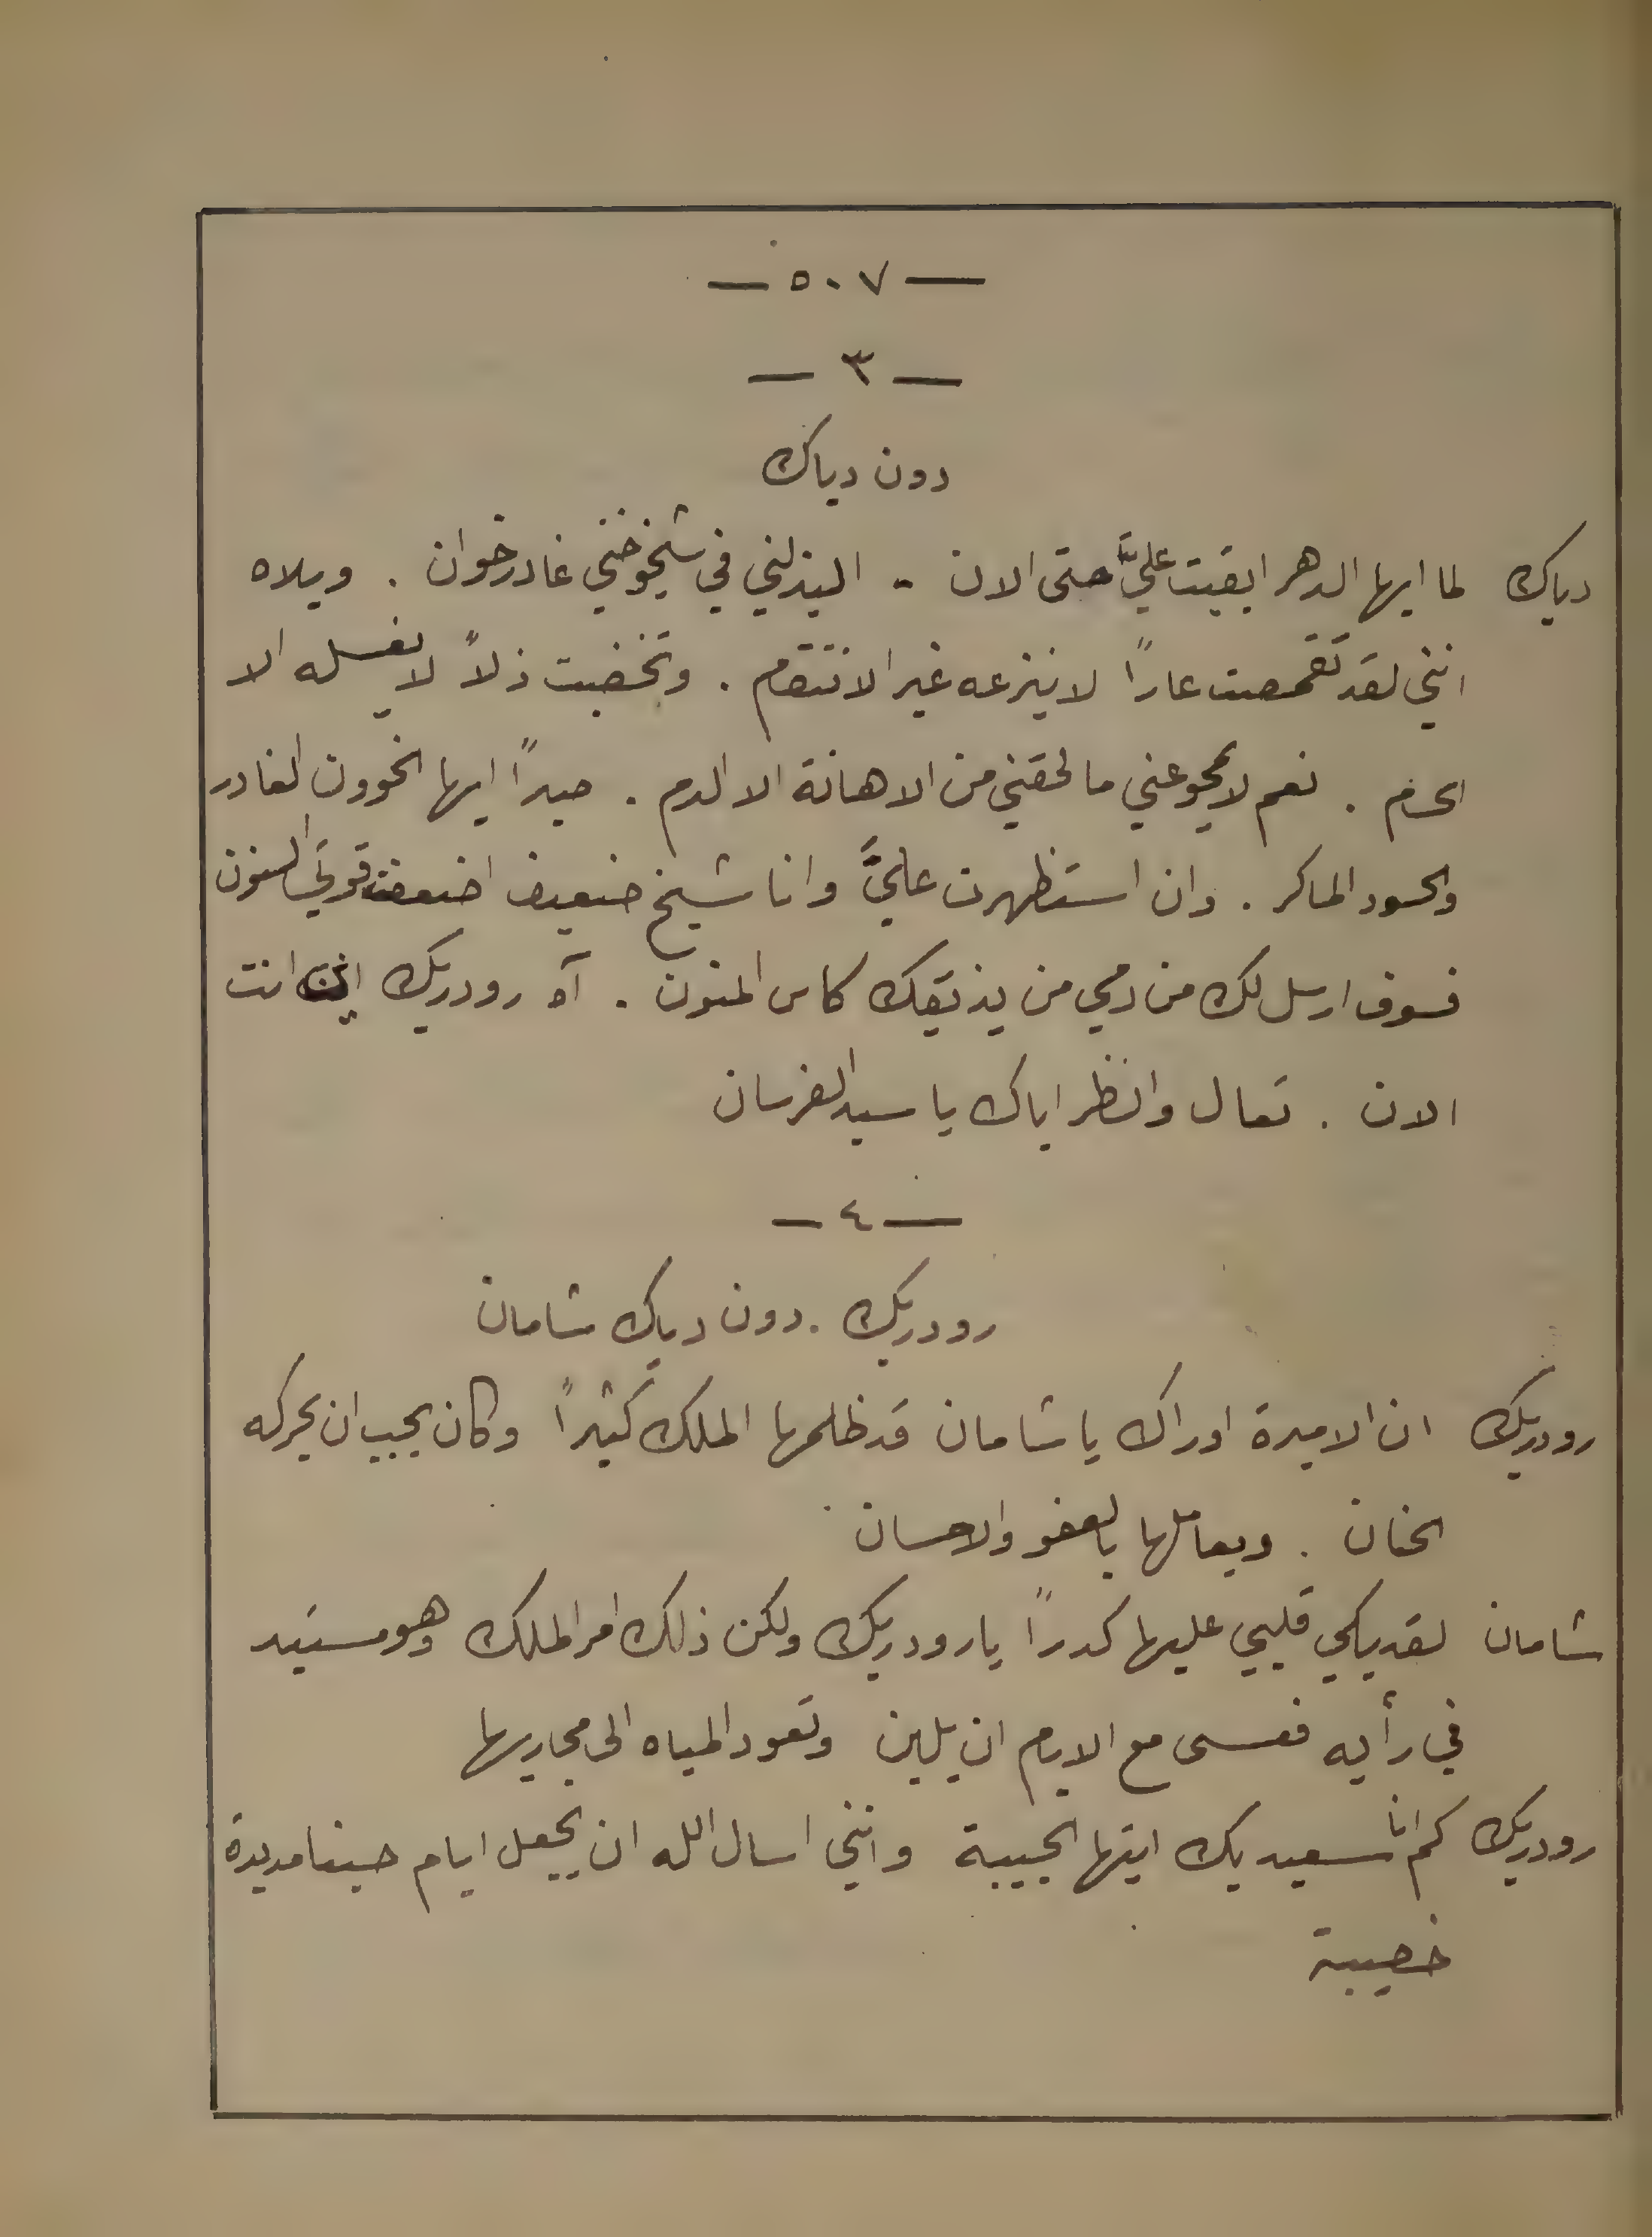 — ٥٠٧ —
— ٣ —
دون دياك
دياك لما ايها الدهر ابقيت عليَّ حتى الان - اليذلني في شيخوختي غادر خوان . ويلاه
انني لقد تقمصت عارًا لا ينزعه غير الانتقام . وتخضبت ذلاً لا يغسله الا
الحسام . نعم لا يمحو عني ما لحقني من الاهانة الا الدم . صبرًا ايها الخوون الغادر
والحسود الماكر . وان استظهرت عليَّ وانا شيخ ضعيف اضعفت قوتي السنون
فسوف ارسل لك من دمي من يذيقك كاس المنون . آه رودريك اين انت
الان . تعال وانظر اباك يا سيد الفرسان
— ٤ —
رودريك . دون دياك شامان
رودريك ان الاميرة اوراك يا شامان قد ظلمها الملك كثيرًا وكان يجب ان يحركه
الحنان . ويعاملها بالعفو والاحسان
شامان لقد يبكي قلبي عليها كدرًا يا رودريك ولكن ذلك امر الملك وهو مستبد
في رأيه فعسى مع الايام ان يلين وتعود المياه الى مجاريها
رودريك كم انا سعيد بك ايتها الحبيبة وانني اسال الله ان يجعل ايام حبنا مديدة
خصيبة